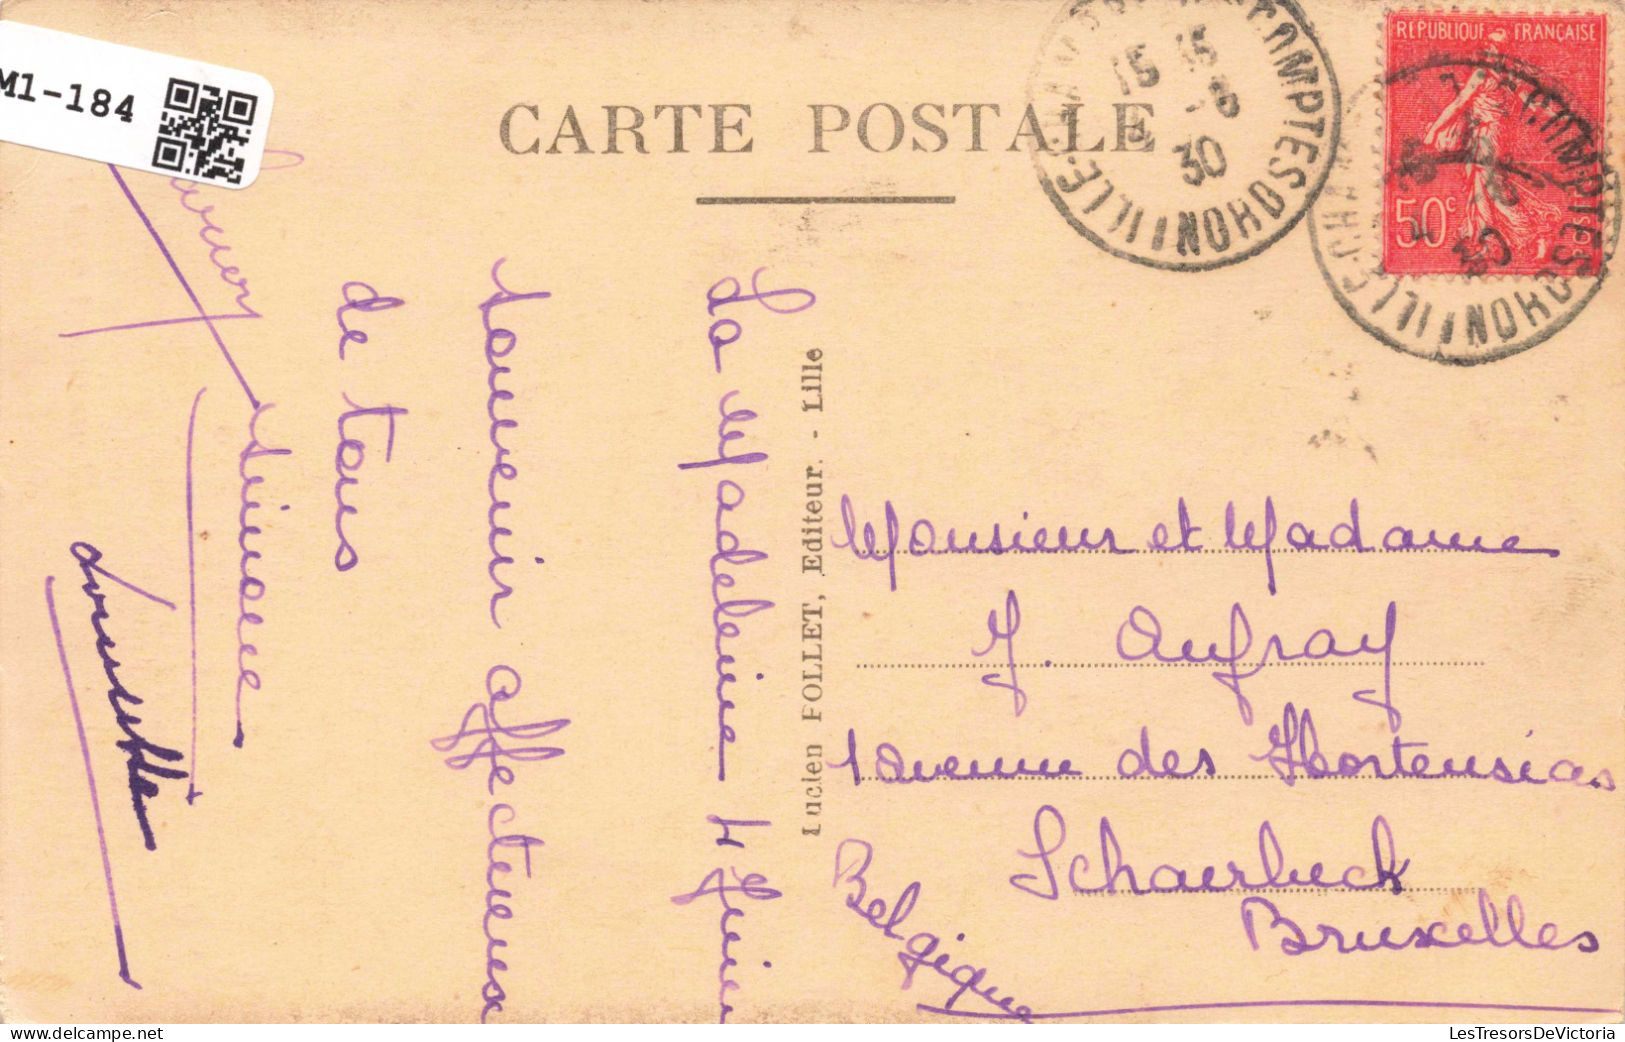 M1-184
CARTE POSTALE
REPUBLIQUE FRANÇAISE
50c
LILLE-CHAMPS DES COMPTES (NORD)
15 15
4 -6
30
La Madeleine 4 Juin
Souvenir affectueux
de tous
Simone
Lucien FOLLET, Editeur. - Lille
Monsieur et Madame
J. Aufray
1 avenue des Hortensias
Schaerbeek
Bruxelles
Belgique
LesTresorsDeVictoria